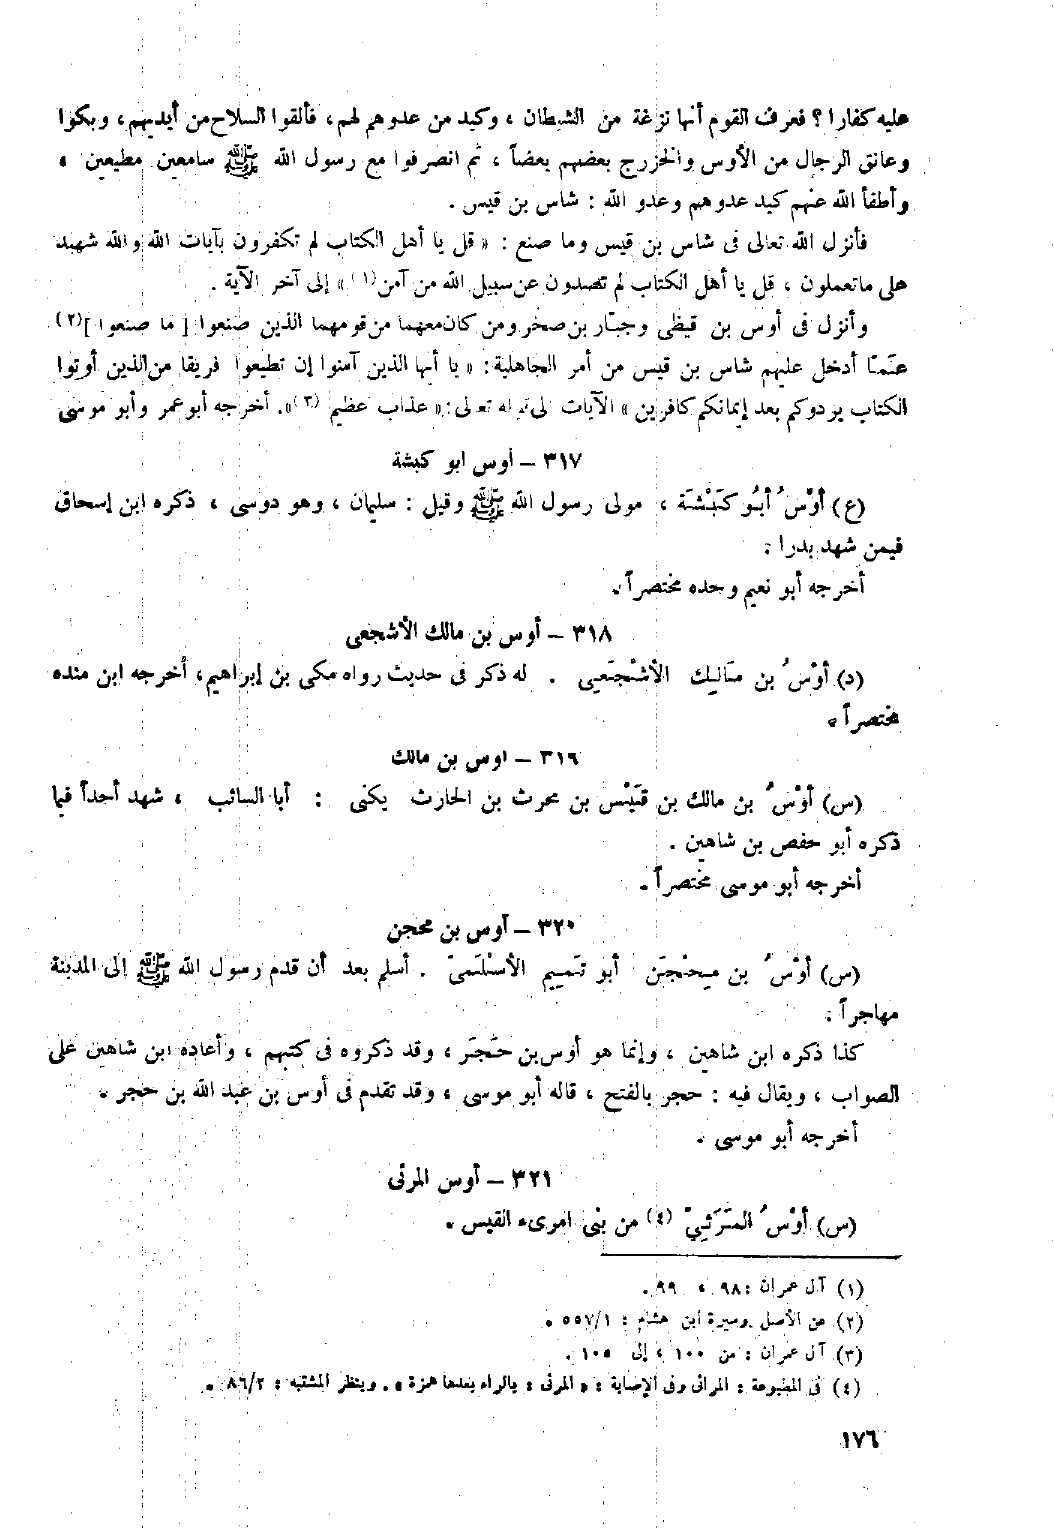 عليه كفارا ؟ فعرف القوم أنها نزغة من الشيطان ، وكيد من عدوهم لهم، فألقوا السلاح من أيديهم، وبكوا
وعانق الرجال من الأوس والخزرج بعضهم بعضاً ، ثم انصرفوا مع رسول الله ﷺ سامعين مطيعين ،
وأطفأ الله عنهم كيد عدوهم وعدو الله : شاس بن قيس .
فأنزل الله تعالى فى شاس بن قيس وما صنع : « قل يا أهل الكتاب لم تكفرون بآيات الله والله شهيد
على ما تعملون ، قل يا أهل الكتاب لم تصدون عن سبيل الله من آمن (١) » إلى آخر الآية .
وأنزل فى أوس بن قيظى وجبّار بن صخر ومن كان معهما من قومهما الذين صنعوا [ ما صنعوا ](٢)
عَمّا أدخل عليهم شاس بن قيس من أمر الجاهلية : « يا أيها الذين آمنوا إن تطيعوا فريقا من الذين أوتوا
الكتاب يردوكم بعد إيمانكم كافرين » الآيات إلى قوله تعالى : « عذاب عظيم (٣) ». أخرجه أبو عمر وأبو موسى
٣١٧ – أوس ابو كبشة
(ع) أَوْسُ أَبُو كَبْشَة ، مولى رسول الله ﷺ وقيل : سليمان ، وهو دوسى ، ذكره ابن إسحاق
فيمن شهد بدرا .
أخرجه أبو نعيم وحده مختصراً .
٣١٨ – أوس بن مالك الأشجعى
(د) أَوْسُ بن مَالِك الأشْجَعِى . له ذكر فى حديث رواه مكى بن إبراهيم، أخرجه ابن منده
مختصراً .
٣١٩ – اوس بن مالك
(س) أَوْسُ بن مالك بن قَيْس بن محرث بن الحارث يكنى : أبا السائب ، شهد أحداً فيما
ذكره أبو حفص بن شاهين .
أخرجه أبو موسى مختصراً .
٣٢٠ – أوس بن محجن
(س) أَوْسُ بن مِحْجَن أبو تَمِيم الأسْلَمىّ . أسلم بعد أن قدم رسول الله ﷺ إلى المدينة
مهاجراً .
كذا ذكره ابن شاهين ، وإنما هو أوس بن حَجَر ، وقد ذكروه فى كتبهم ، وأعاده ابن شاهين على
الصواب ، ويقال فيه : حجر بالفتح ، قاله أبو موسى ، وقد تقدم فى أوس بن عبد الله بن حجر .
أخرجه أبو موسى .
٣٢١ – أوس المرئى
(س) أَوْسُ المَرَئِىّ (٤) من بنى امرىء القيس .
(١) آل عمران : ٩٨ ، ٩٩ .
(٢) عن الأصل وسيرة ابن هشام : ٥٥٧/١ .
(٣) آل عمران : من ١٠٠ ، إلى ١٠٥ .
(٤) فى المطبوعة : المرائى وفى الإصابة : « المرئى : بالراء بعدها همزة » . وينظر المشتبه : ٨٦/٢ .
١٧٦